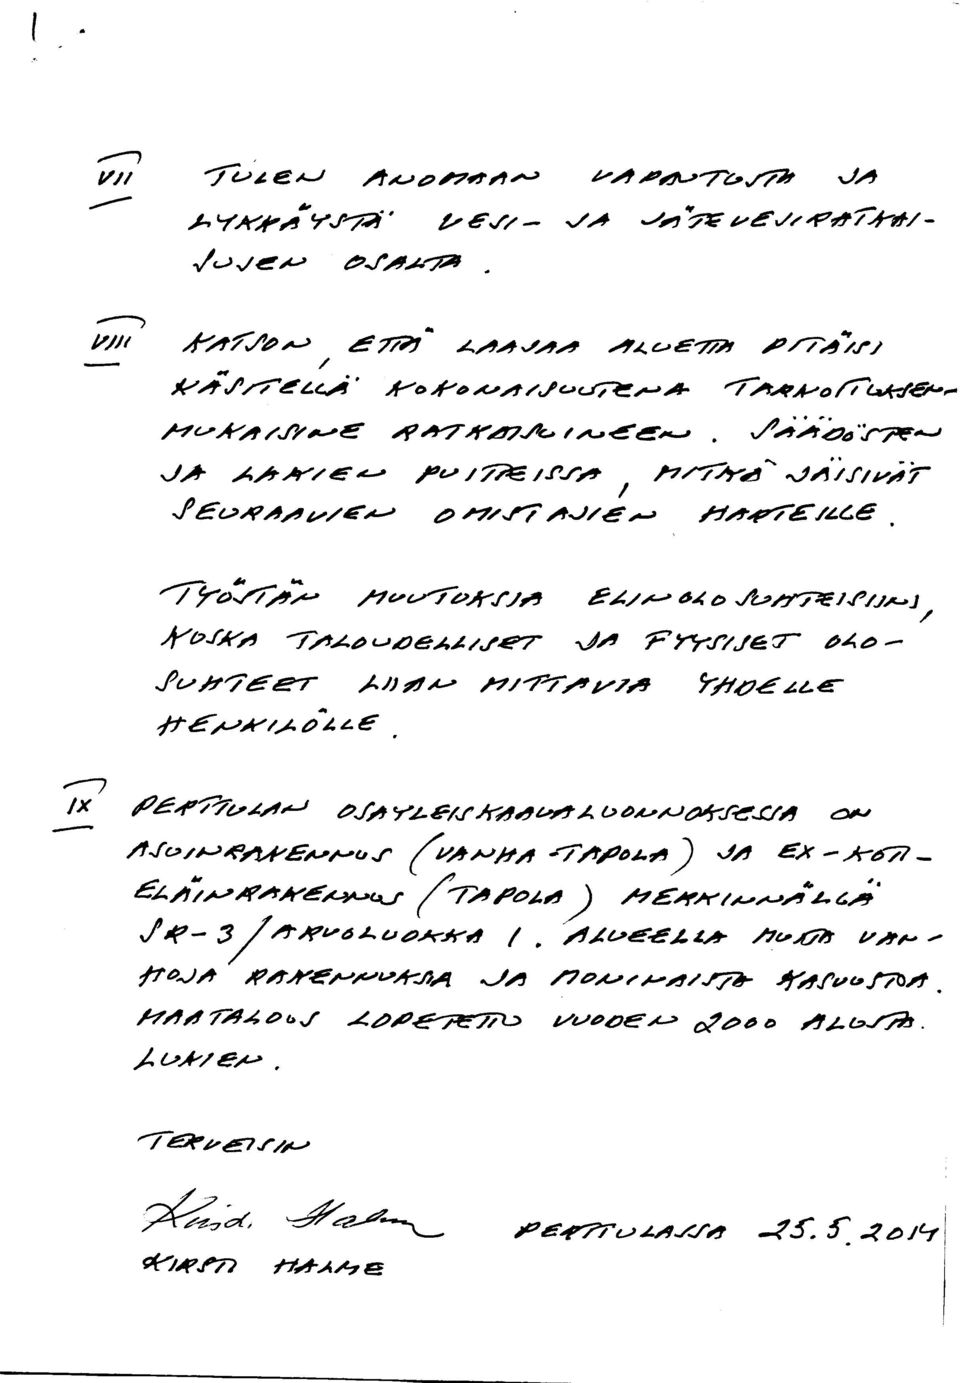 VII TULEN ANOMAAN VAPAUTUSTA JA
LYKKÄYSTÄ VESI- JA JÄTEVESIRATKAI-
SUJEN OSALTA.
VIII KATSON, ETTÄ LAAJAA ALUETTA PITÄISI
KÄSITELLÄ KOKONAISUUTENA TARKOITUKSEN-
MUKAISINE RATKAISUINEEN. SÄÄDÖSTEN
JA LAKIEN PUITTEISSA, MITKÄ JÄISIVÄT
SEURAAVIEN OMISTAJIEN HARTEILLE.
TYÖSTÄN MUUTOKSIA ELINOLOSUHTEISIINI,
KOSKA TALOUDELLISET JA FYYSISET OLO-
SUHTEET LIIAN MITTAVIA YHDELLE
HENKILÖLLE.
IX PERTTULAN OSAYLEISKAAVALUONNOKSESSA ON
ASUINRAKENNUS (VANHA-TAPOLA) JA EX-KOTI-
ELÄINRAKENNUS (TAPOLA) MERKINNÄLLÄ
SR-3/ARVOLUOKKA I. ALUEELLA MUITA VAN-
HOJA RAKENNUKSIA JA MONINAISTA KASVUSTOA.
MAATALOUS LOPETETTU VUODEN 2000 ALUSTA
LUKIEN.
TERVEISIN
Kirsti Halme PERTTULASSA 25.5.2014
KIRSTI HALME